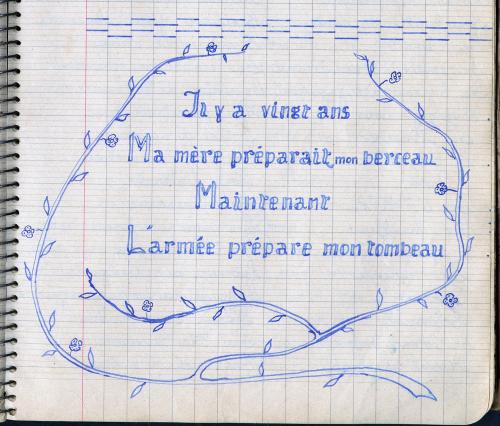 Il y a vingt ans
Ma mère préparait mon berceau
Maintenant
L'armée prépare mon tombeau